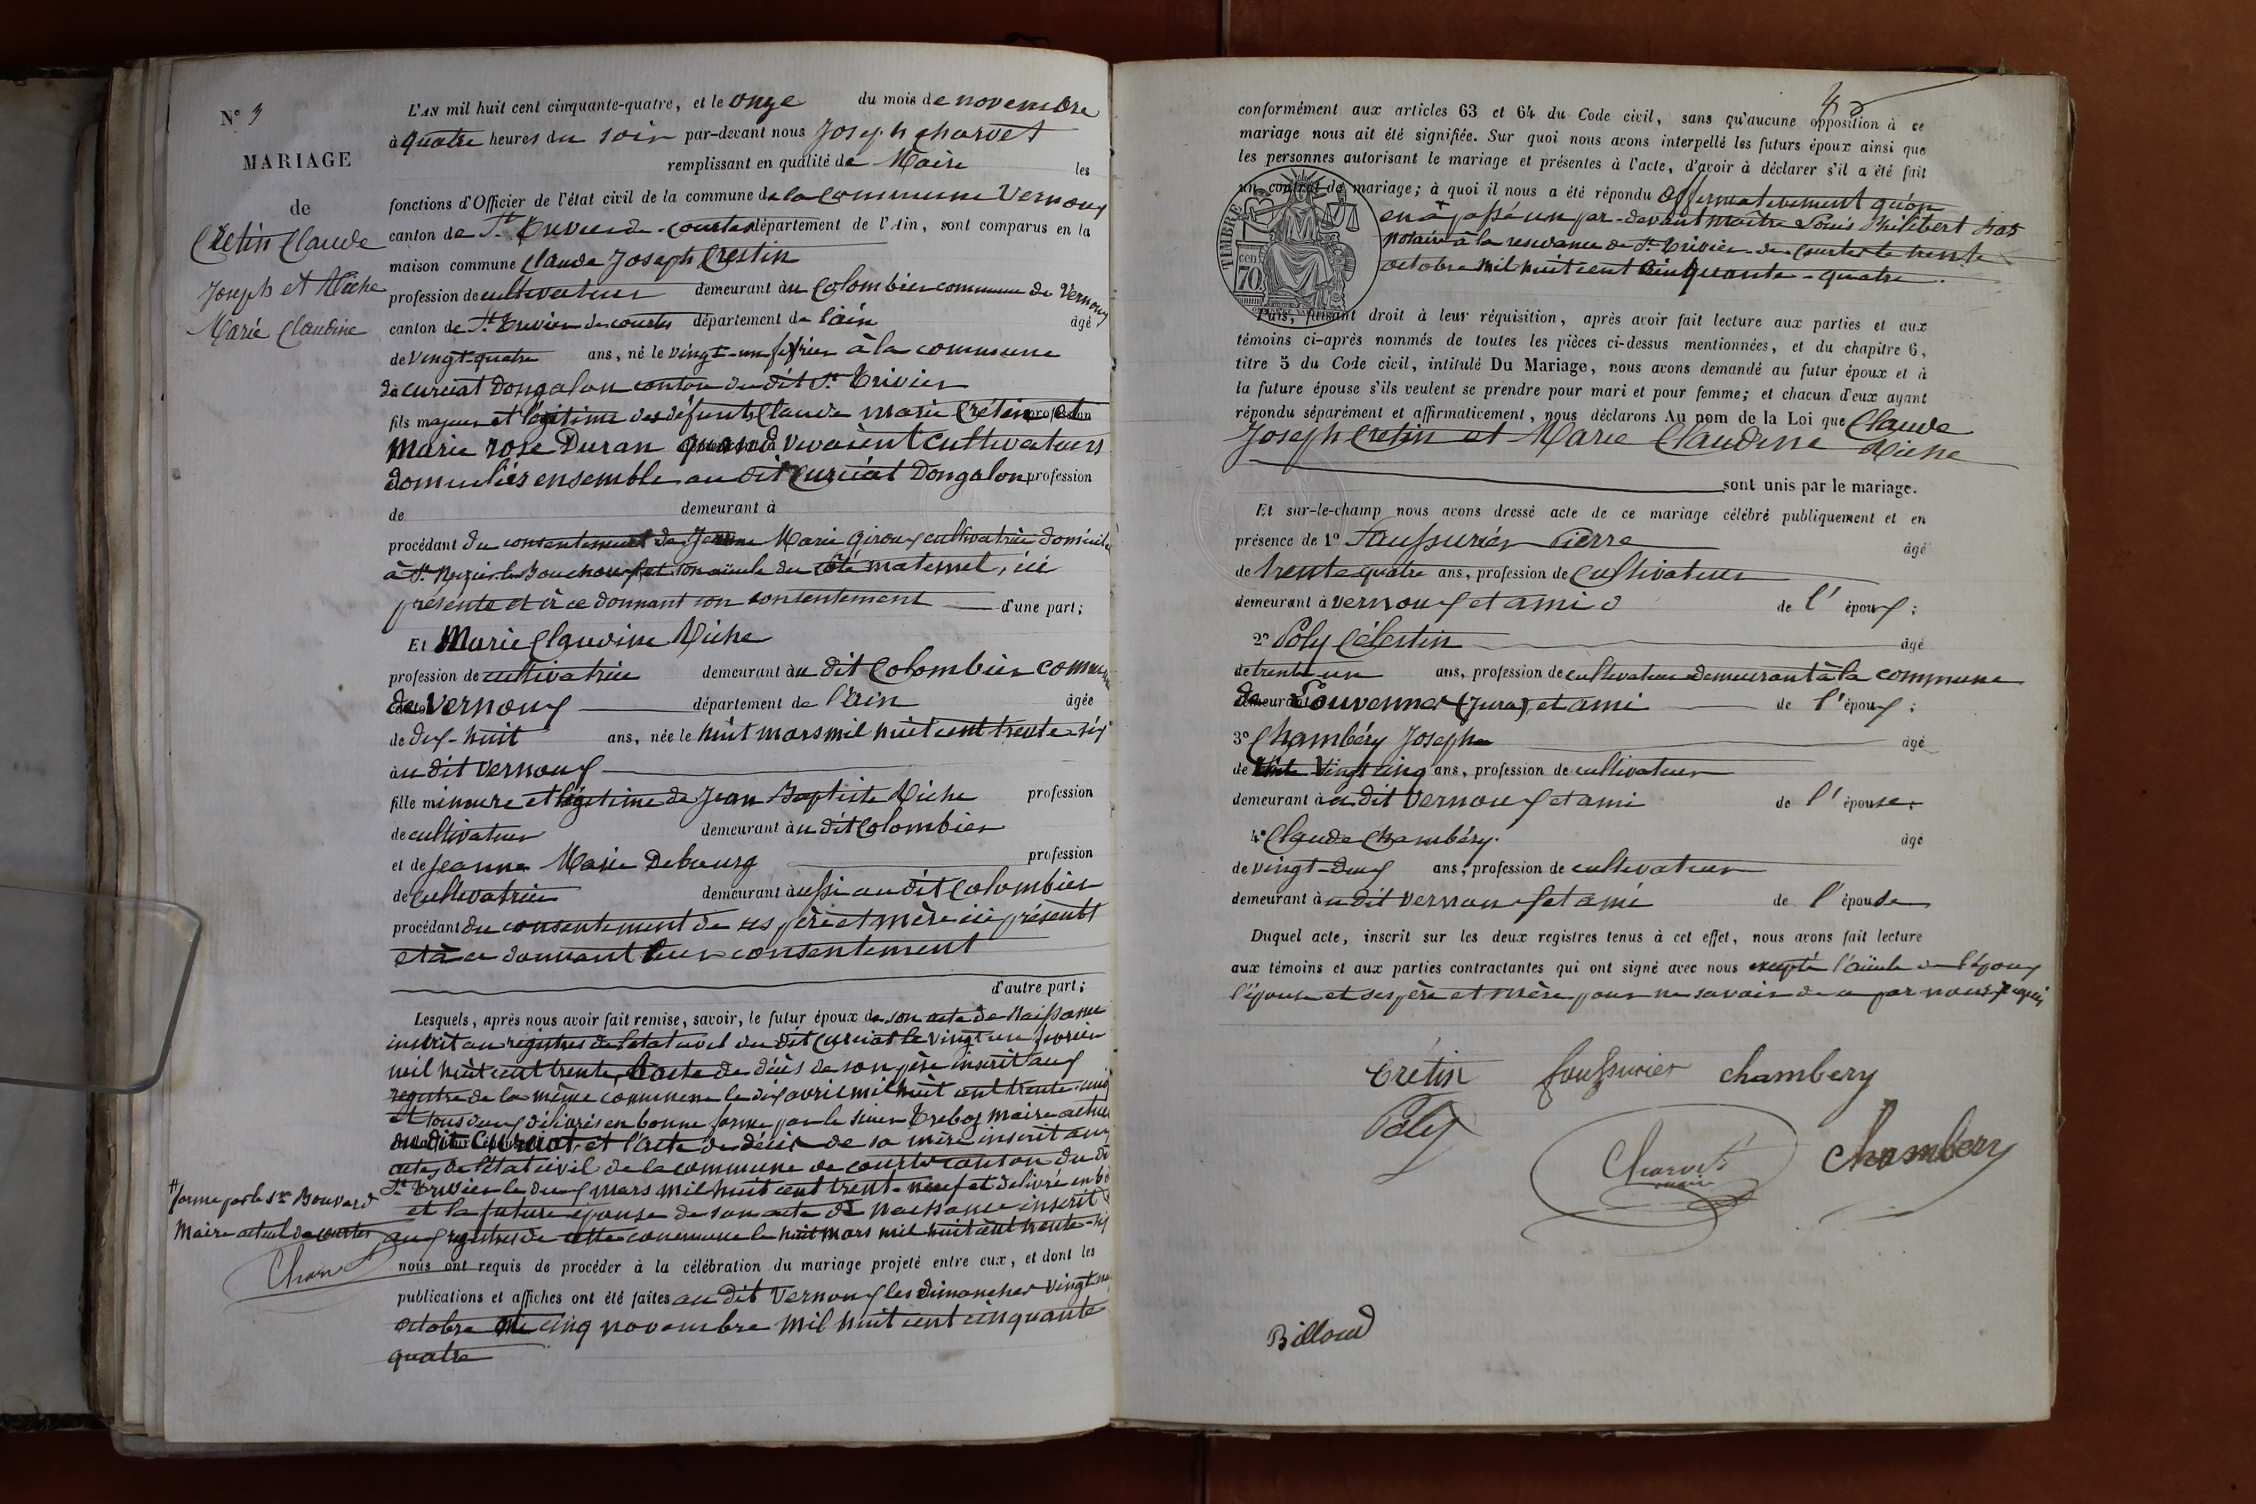 N° 3
MARIAGE
de
Crétin Claude
Joseph et Miche
Marie Claudine
L'AN mil huit cent cinquante-quatre, et le onze du mois de novembre
à quatre heures du soir par-devant nous Joseph Charvet
remplissant en qualité de Maire les
fonctions d'Officier de l'état civil de la commune de la commune Vernoux
canton de St Trivier de-Courtes département de l'Ain, sont comparus en la
maison commune Claude Joseph Crétin
profession de cultivateur demeurant à au Colombier commune de Vernoux
canton de St Trivier de courtes département de l'ain âgé
de vingt-quatre ans, né le vingt-un février à la commune
de curciat Dongalon canton du dit St Trivier
fils majeur et légitime des défunts Claude marie Crétin et
Marie rose Duran quand vivaient cultivateurs
domiciliés ensemble au dit Curciat Dongalon profession
de demeurant à
procédant du consentement de Jeanne Marie Giroux cultivatrice domicilié
à St Nizier-le Bouchoux et son aïeule du côté maternel, ici
présente et à ce donnant son consentement d'une part;
Et Marie Claudine Miche
profession de cultivatrice demeurant à au dit Colombier commune
de Vernoux département de l'Ain âgée
de dix-huit ans, née le huit mars mil huit cent trente-six
à au dit vernoux
fille mineure et légitime de Jean Baptiste Miche profession
de cultivateur demeurant à au dit Colombier
et de Jeanne Marie Debourg profession
de cultivatrice demeurant à aussi au dit Colombier
procédant du consentement de ses père et mère ici présents
et à ce donnant leur consentement
d'autre part;
Lesquels, après nous avoir fait remise, savoir, le futur époux de son acte de Naissance
inscrit au registres de l'état civil du dit Curciat le vingt un février
mil huit cent trente, l'acte de décès de son père inscrit aux
registre de la même commune le dix avril mil huit cent trente-
et tous deux délivrés en bonne forme par le sieur Trebos maire actuel
du dit Curciat, et l'acte de décès de sa mère inscrit aux
actes de l'état civil de la commune de courtes canton du dit
St Trivier le deux mars mil huit cent trente-neuf et délivré en bo
# forme par le Sr Bouvard
Maire actuel de courtes
Charvet
et la future épouse de son acte de naissance inscrit
aux registres de cette commune le huit mars mil huit cent trente-six
nous ont requis de procéder à la célébration du mariage projeté entre eux, et dont les
publications et affiches ont été faites au dit Vernoux les dimanches vingt
octobre et cinq novembre mil huit cent cinquante
quatre
conformément aux articles 63 et 64 du Code civil, sans qu'aucune opposition à ce
mariage nous ait été signifiée. Sur quoi nous avons interpellé les futurs époux ainsi que
les personnes autorisant le mariage et présentes à l'acte, d'avoir à déclarer s'il a été fait
un contrat de mariage; à quoi il nous a été répondu affirmativement qu'on
en a passé un par-devant maître Louis Philibert
notaire à la résidence de St Trivier de Courtes le trente
octobre mil huit cent cinquante-quatre.
TIMBRE
70
Puis, faisant droit à leur réquisition, après avoir fait lecture aux parties et aux
témoins ci-après nommés de toutes les pièces ci-dessus mentionnées, et du chapitre 6,
titre 5 du Code civil, intitulé Du Mariage, nous avons demandé au futur époux et à
la future épouse s'ils veulent se prendre pour mari et pour femme; et chacun d'eux ayant
répondu séparément et affirmativement, nous déclarons Au nom de la Loi que Claude
Joseph Cretin et Marie Claudine Miche
sont unis par le mariage.
Et sur-le-champ nous avons dressé acte de ce mariage célébré publiquement et en
présence de 1° Faussurier Pierre âgé
de trente quatre ans, profession de cultivateur
demeurant à vernoux et ami de l'époux;
2° Poly Célestin âgé
de trente un ans, profession de cultivateur demeurant à la commune
de Louvenner (Jura), et ami de l'époux;
3° Chambéry Joseph âgé
de vingt cinq ans, profession de cultivateur
demeurant à au dit Vernoux et ami de l'épouse;
4° Claude Chambéry. âgé
de vingt-deux ans, profession de cultivateur
demeurant à au dit vernoux et ami de l'épouse
Duquel acte, inscrit sur les deux registres tenus à cet effet, nous avons fait lecture
aux témoins et aux parties contractantes qui ont signé avec nous excepté l'aïeule de l'époux
l'épouse et ses père et mère pour ne savoir de ce par nous requis
Crétin Faussurier Chambery
Poly
Charvet
maire
Chambery
Billoud